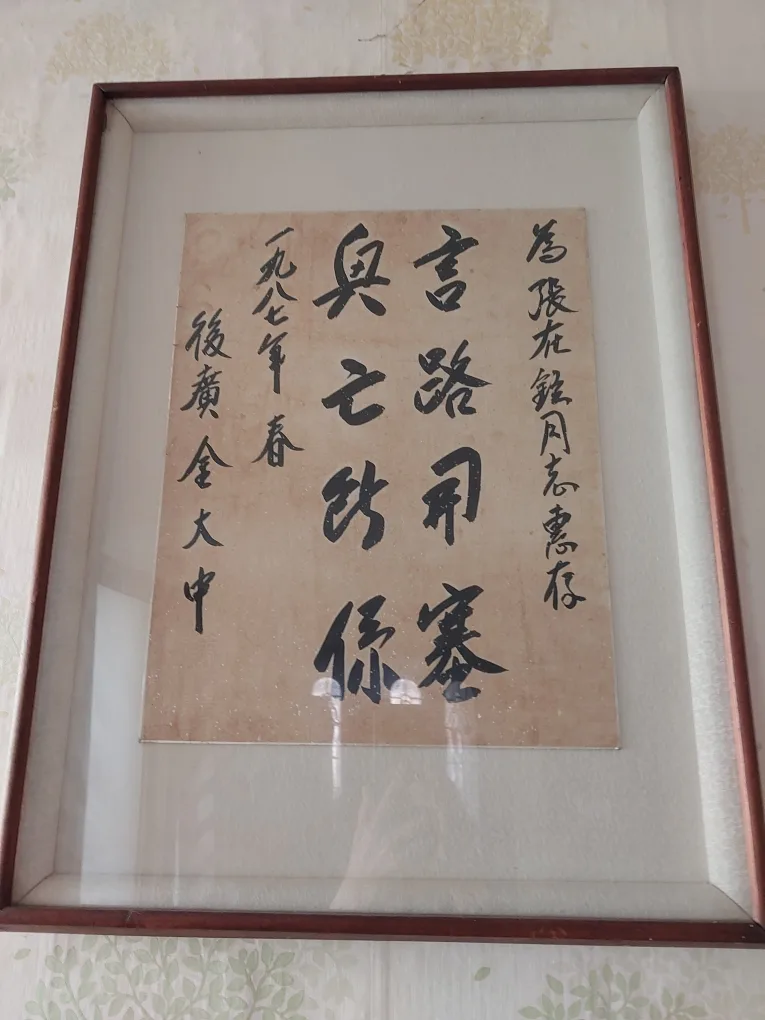 為張在同志惠存
言路開塞
興亡所係
一九八七年春
後廣金大中